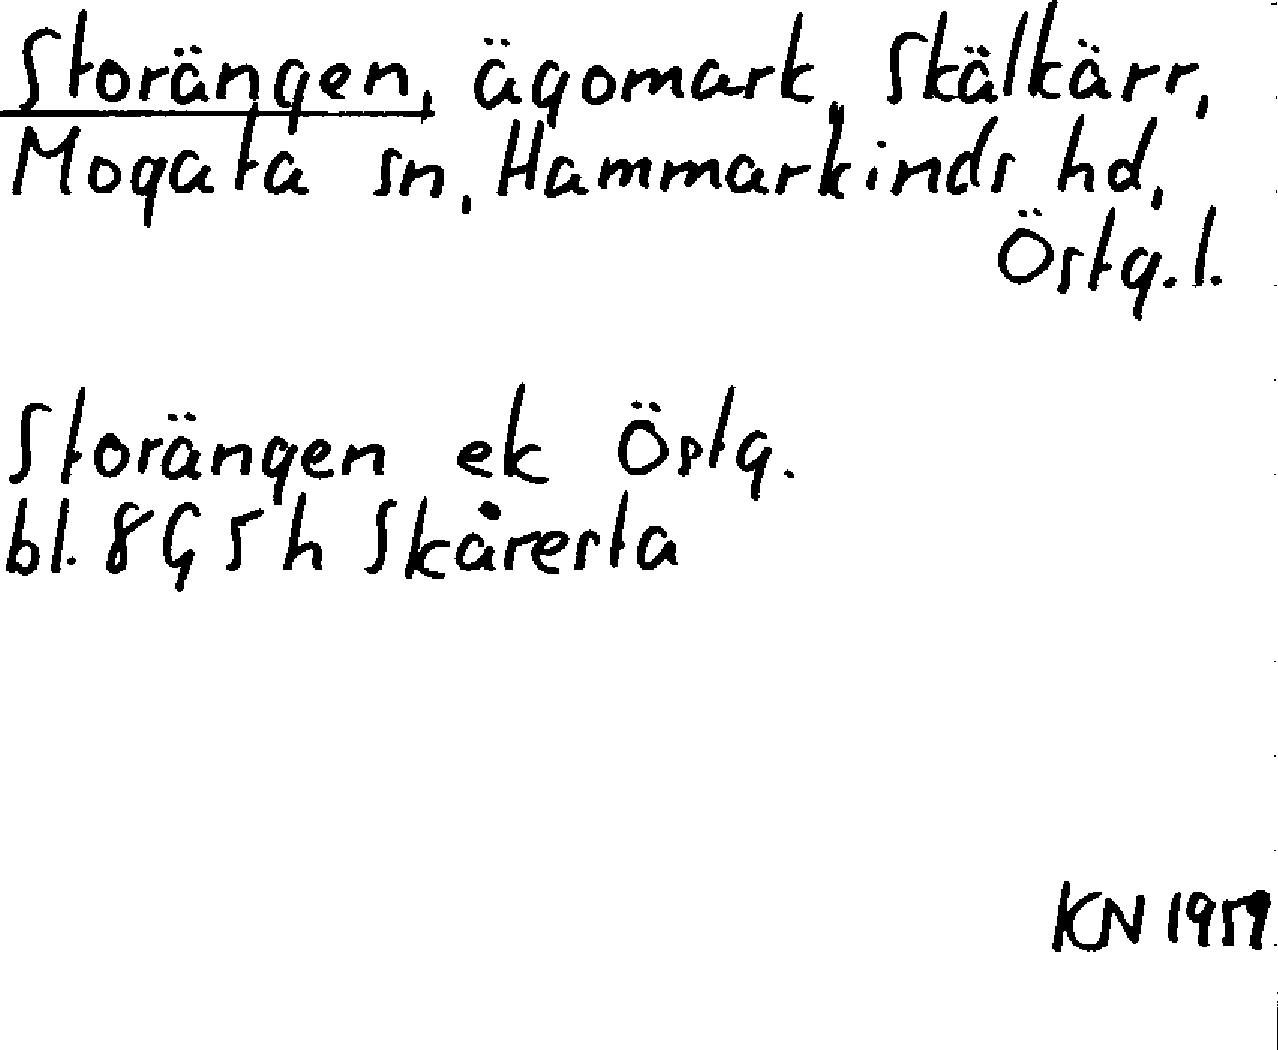 Storängen, ägomark, Skälkärr,
Mogata sn, Hammarkinds hd,
Östg. l.
Storängen ek Östg.
bl. 8G 5h Skåresta
KN 1959